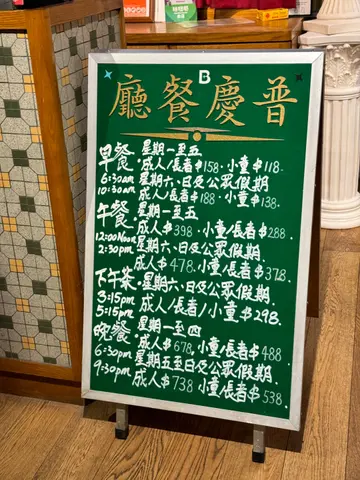 B
廳餐慶普
早餐 星期一至五
·成人/長者$158·小童$118·
6:30am 星期六、日及公眾假期
10:30am 成人/長者$188·小童$138·
午餐 星期一至五
·成人$398·小童/長者$288·
12:00Noon 星期六、日及公眾假期
2:30pm 成人$478·小童/長者$378·
下午茶·星期六、日及公眾假期·
3:15pm 成人/長者/小童$298·
5:15pm
晚餐 星期一至四
·成人$678·小童/長者$488
6:30pm 星期五至日及公眾假期
9:30pm 成人$738 小童/長者$538·